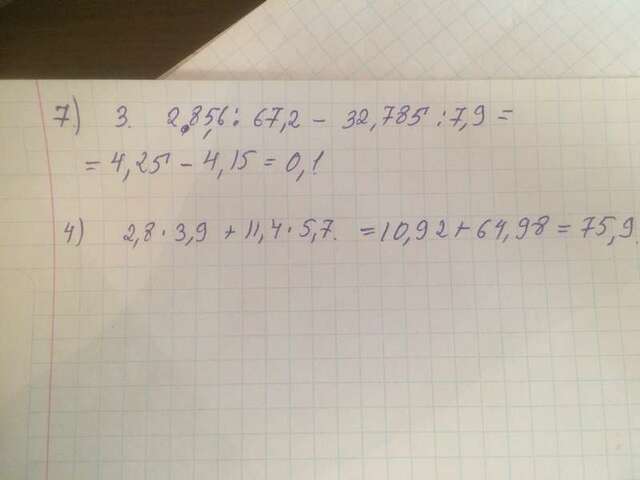 7) 3. 2,856 : 67,2 - 32,785 : 7,9 =
= 4,25 - 4,15 = 0,1
4) 2,8 · 3,9 + 11,4 · 5,7. = 10,92 + 64,98 = 75,9.